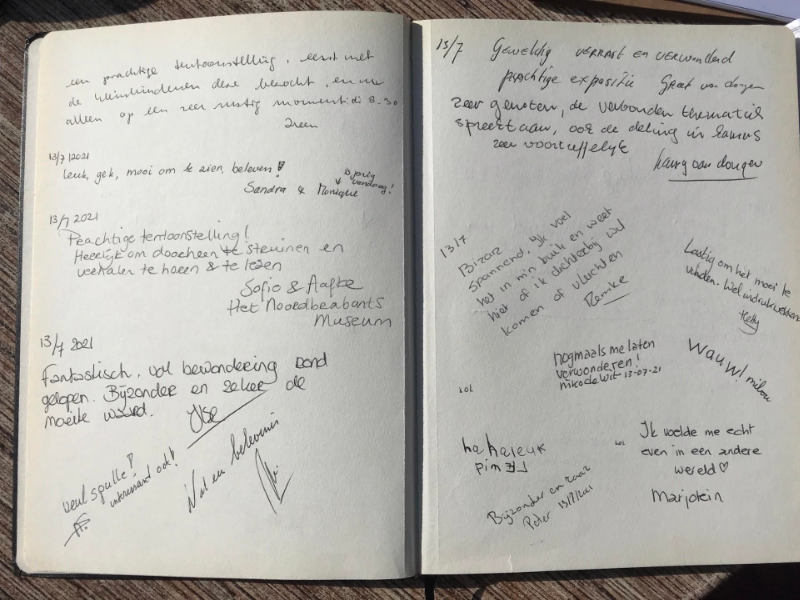 een prachtige tentoonstelling, eerst met
de kleinkinderen deze bezocht, en nu
alleen op een zeer rustig moment: di 8.30
13/7/2021
Leuk, gek, mooi om te zien, beleven!
Sandra & Monique
jarig
vandaag!
13/7 2021
Prachtige tentoonstelling!
Heerlijk om doorheen te struinen en
verhalen te horen & te lezen
Sofie & Aafke
Het Noordbrabants
Museum
13/7 2021
Fantastisch, vol bewondering rond
gelopen. Bijzonder en zeker de
moeite waard. Ilse
veel spulle!
interessant ook!
Wat een belevenis
13/7 Geweldig verrast en verwonderd
prachtige expositie Groet van dongen
zeer genoten, de verbonden thematiek
spreekt aan, ook de deling in kamers
zeer voortreffelijk
van dongen
13/7
Bizar
Spannend, ik voel
het in m'n buik en weet
niet of ik dichterbij wil
komen of vluchten
Remke
Lastig om het mooi te
vinden. Wel indrukwekkend
Hetty
nogmaals me laten
verwonderen!
nikodewit 13-07-21
Wauw! milou
LOL
ha ha leuk
Pim
LOL
Ik voelde me echt
even in een andere
wereld ♡
Marjolein
Bijzonder en raar
Peter 13/7/2021